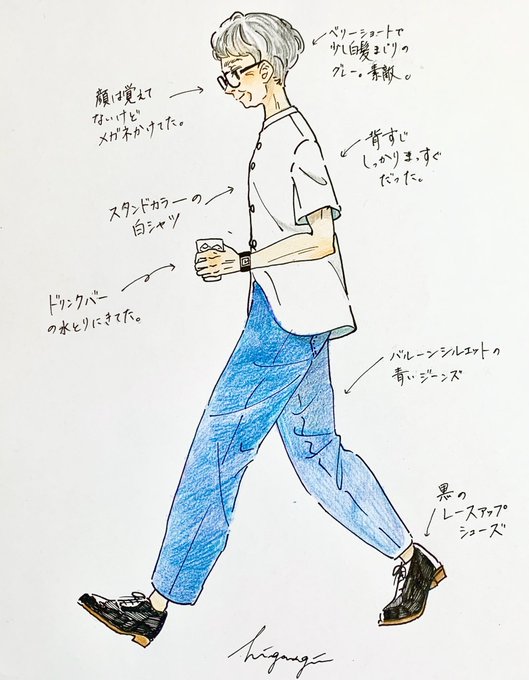 ベリーショートで
少し白髪まじりの
グレー。素敵。
顔は覚えて
ないけど
メガネかけてた。
背すじ
しっかりまっすぐ
だった。
スタンドカラーの
白シャツ
ドリンクバー
の水とりにきてた。
バルーンシルエットの
青いジーンズ
黒の
レースアップ
シューズ